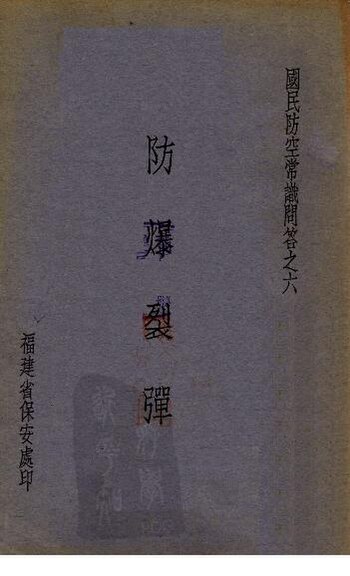 國民防空常識問答之六
防爆裂彈
福建省保安處印